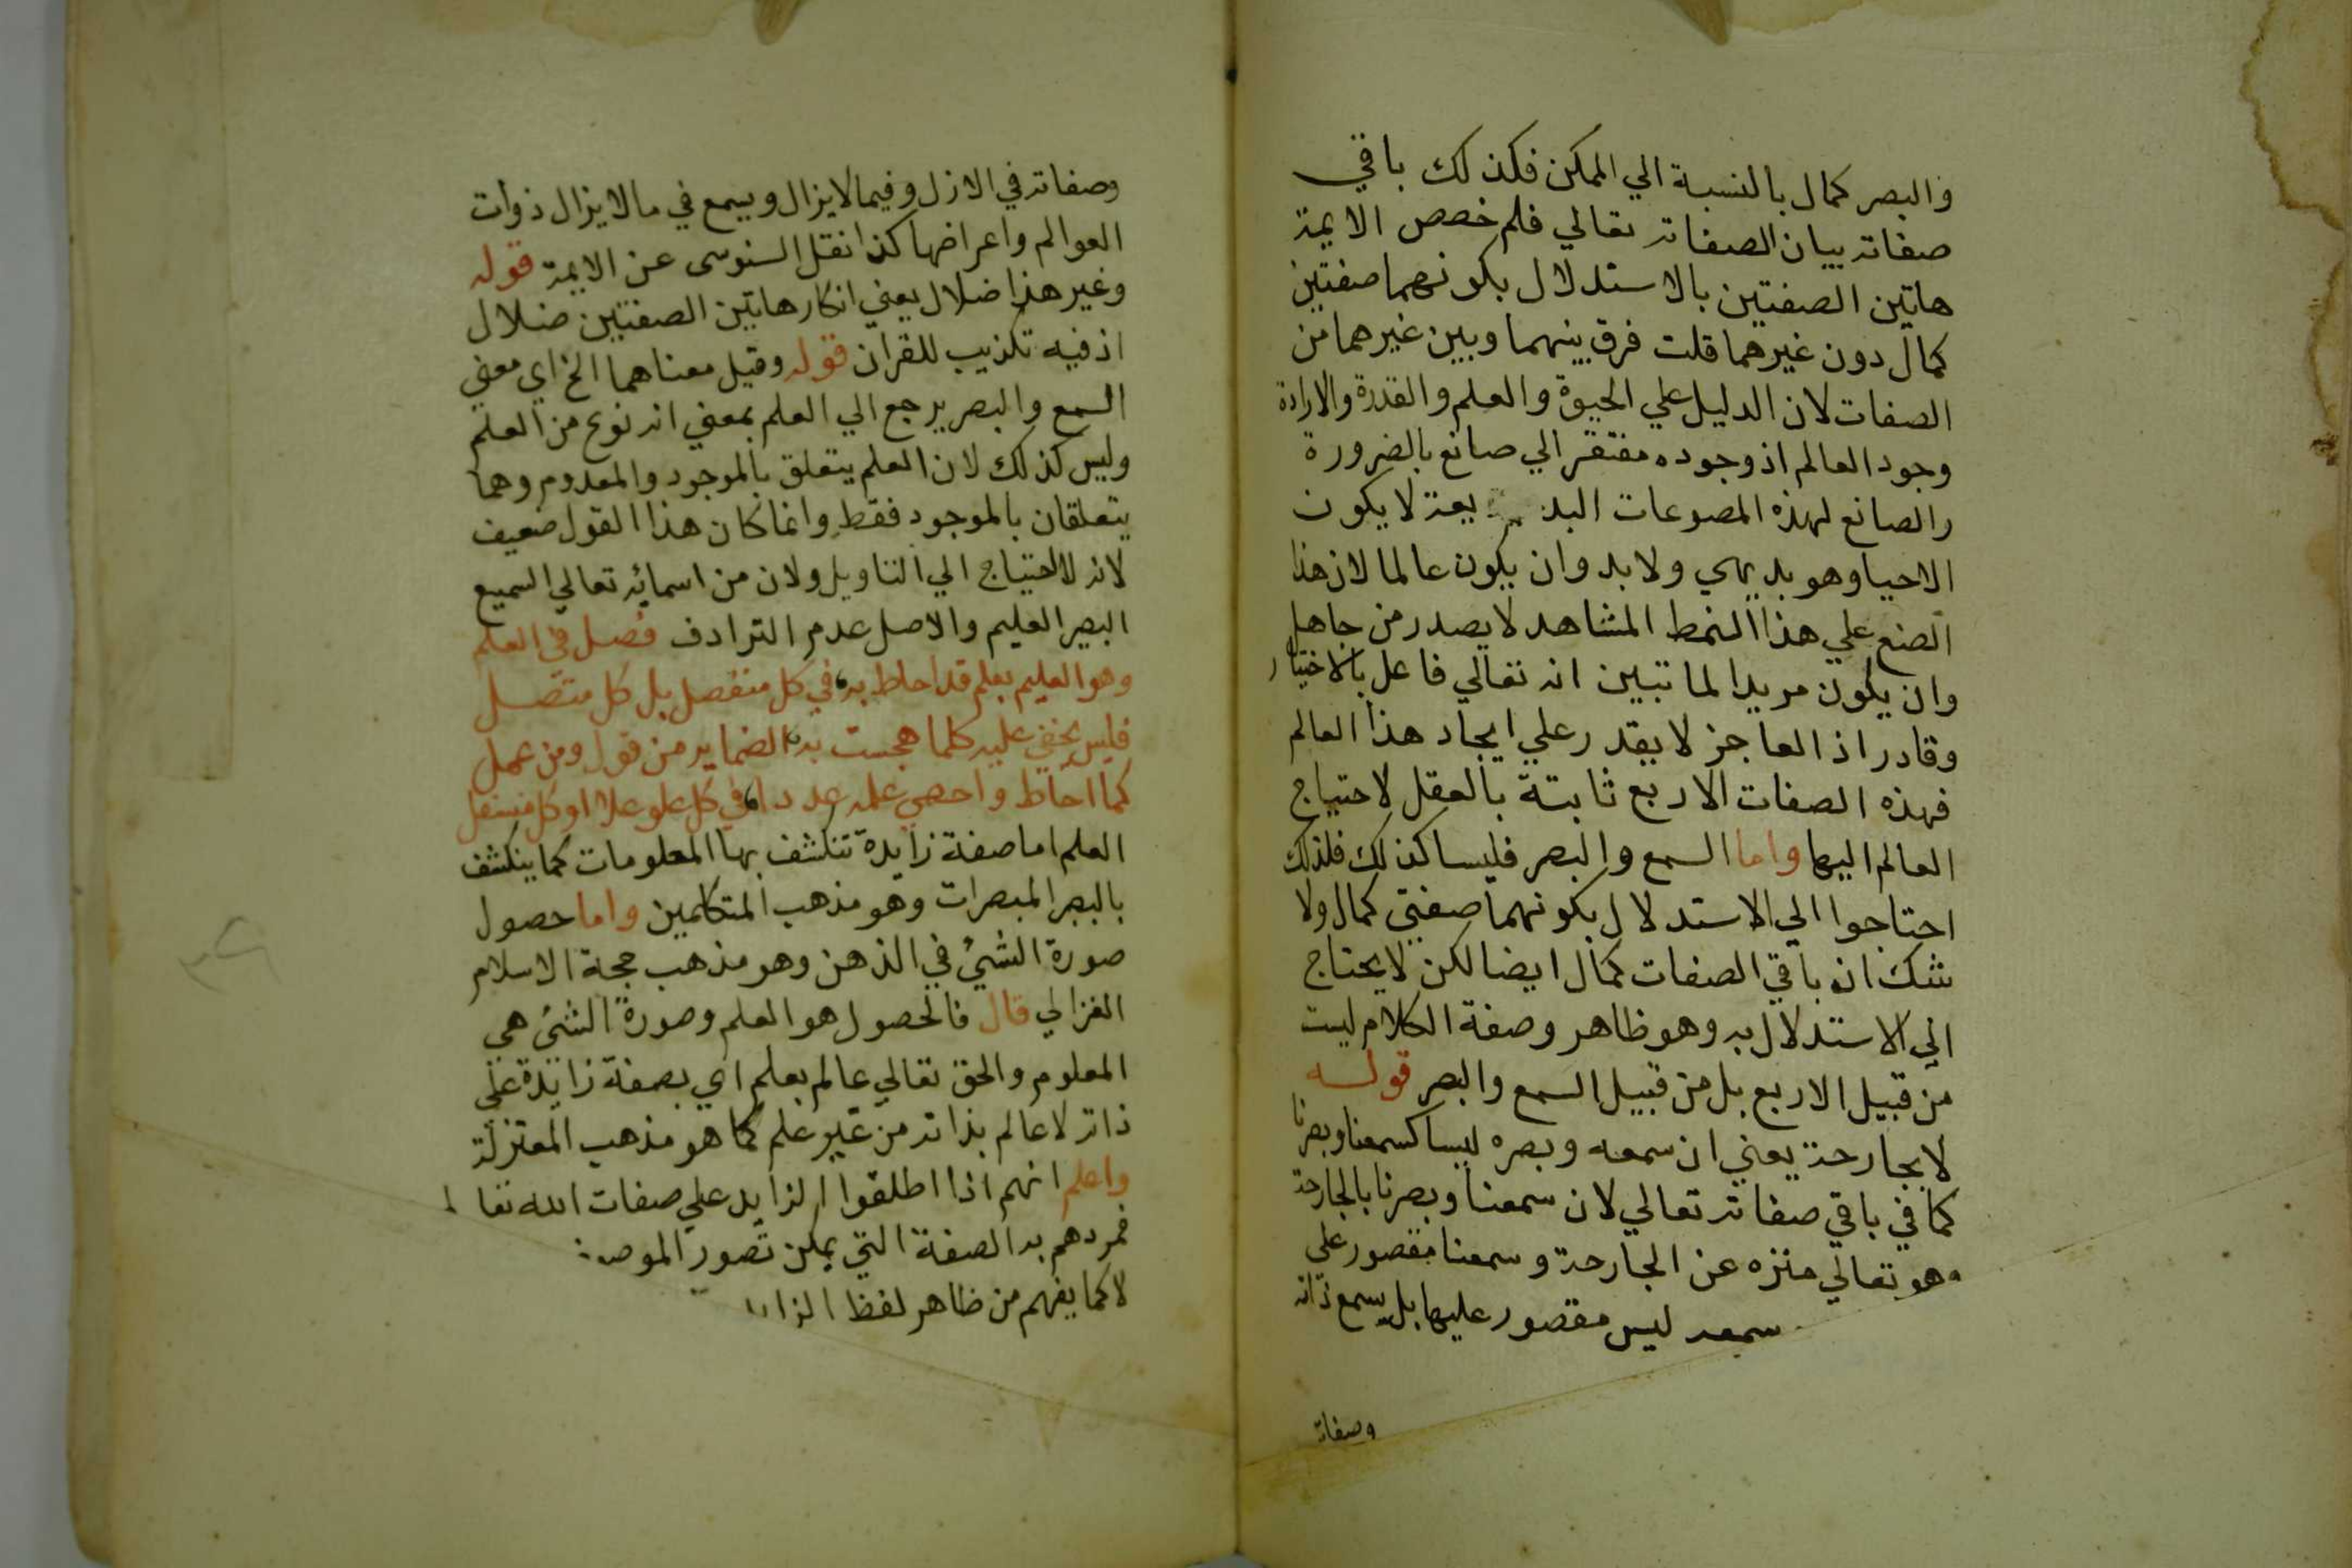 والبصر كمال بالنسبة الي الممكن فكذلك باقي
صفاته بيان الصفاته تعالي فلم خصص الايمة
هاتين الصفتين بالاستدلال بكونهما صفتين
كمال دون غيرهما قلت فرق بينهما وبين غيرهما من
الصفات لان الدليل علي الحيوة والعلم والقدرة والارادة
وجود العالم اذ وجوده مفتقر الي صانع بالضرورة
والصانع لهذه المصوعات البديعة لا يكون
الاحيا وهو بديهي ولا بد وان يكون عالما لان هذا
الصنع علي هذا النمط المشاهد لا يصدر من جاهل
وان يكون مريدا لما تبين انه تعالي فاعل بالاختيار
وقادر اذ العاجز لا يقدر علي ايجاد هذا العالم
فهذه الصفات الاربع ثابتة بالعقل لاحتياج
العالم اليها واما السمع والبصر فليسا كذلك فلذلك
احتاجوا الي الاستدلال بكونهما صفتي كمال ولا
شك ان باقي الصفات كمال ايضا لكن لا يحتاج
الي الاستدلال به وهو ظاهر وصفة الكلام ليست
من قبيل الاربع بل من قبيل السمع والبصر قوله
لا بجارحة يعني ان سمعه وبصره ليسا كسمعنا وبصرنا
كما في باقي صفاته تعالي لان سمعنا وبصرنا بالجارحة
وهو تعالي منزه عن الجارحة وسمعنا مقصور علي
سمعه ليس مقصور عليها بل يسمع ذاته
وصفاته
وصفاته في الازل وفيما لا يزال ويسمع في ما لا يزال ذوات
العوالم واعراضها كذا نقل السنوسى عن الايمة قوله
وغير هذا ضلال يعني انكار هاتين الصفتين ضلال
اذ فيه تكذيب للقران قوله وقيل معناهما الخ اي معني
السمع والبصر يرجع الي العلم بمعني انه نوع من العلم
وليس كذلك لان العلم يتعلق بالموجود والمعدوم وهما
يتعلقان بالموجود فقط وانما كان هذا القول ضعيف
لانه لااحتياج الي التاويل ولان من اسمائه تعالي السميع
البصير العليم والاصل عدم الترادف فصل في العلم
وهو العليم بعلم قد احاط به في كل منفصل بل كل متصل
فليس يخفي عليه كلما هجست به الضماير من قول ومن عمل
كما احاط واحصي علمه عددا في كل علو علا او كل مستفل
العلم اما صفة زايدة تنكشف بها المعلومات كما ينكشف
بالبصر المبصرات وهو مذهب المتكلمين واما حصول
صورة الشئ في الذهن وهو مذهب حجة الاسلام
الغزالي قال فالحصول هو العلم وصورة الشئ هي
المعلوم والحق تعالي عالم بعلم اي بصفة زايدة علي
ذاته لا عالم بذاته من غير علم كما هو مذهب المعتزلة
واعلم انهم اذا اطلقوا الزايد علي صفات الله تعا
فمردهم به الصفة التي يمكن تصور الموصو
لا كما يفهم من ظاهر لفظ